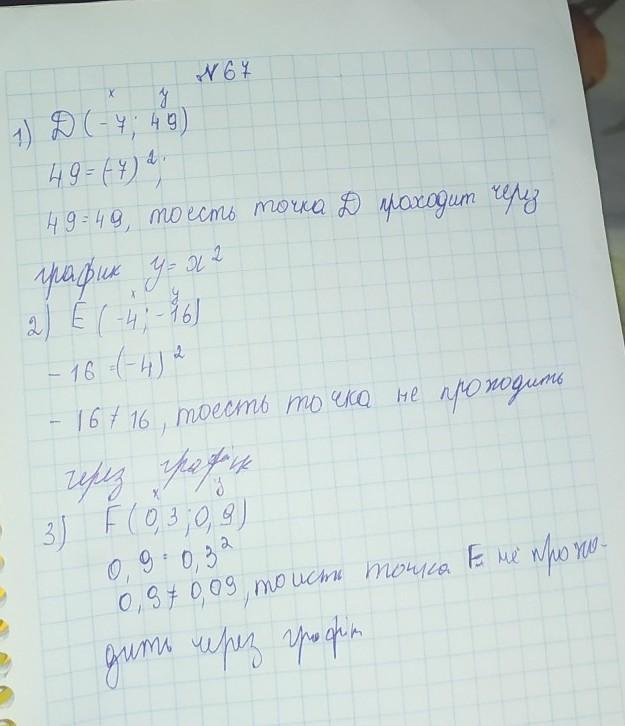 №67
x y
1) D (-7; 49)
49 = (-7)²;
49 = 49, тоесть точка D проходит через
график y = x²
x y
2) E (-4; -16)
-16 = (-4)²
-16 ≠ 16, тоесть точка не проходить
через графік
x y
3) F (0,3; 0,9)
0,9 = 0,3²
0,9 ≠ 0,09, тоисть точка F не прохо-
дить через графік